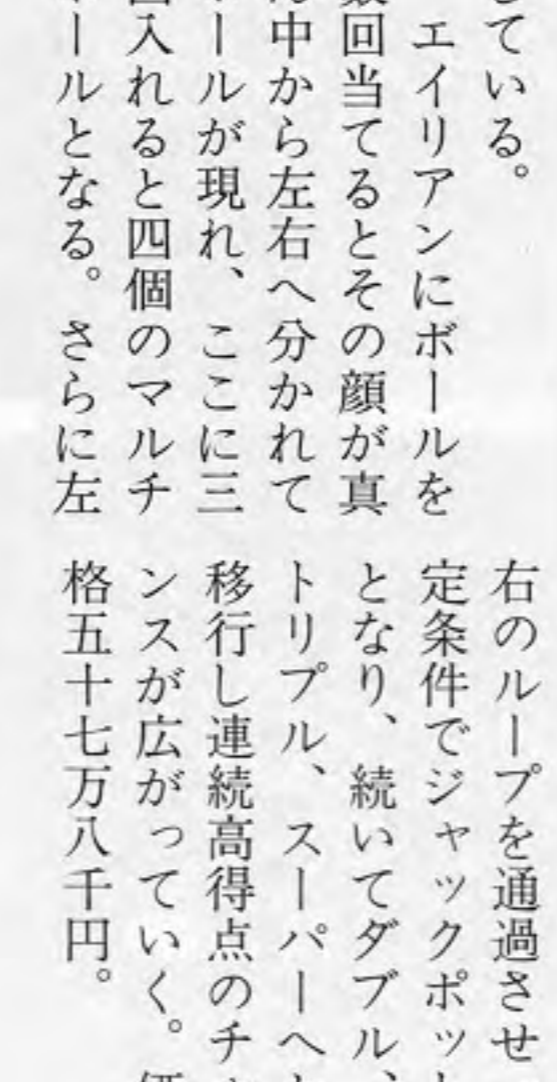 している。
エイリアンにボールを
数回当てるとその顔が真
ん中から左右へ分かれて
ールが現れ、ここに三
回入れると四個のマルチ
ールとなる。さらに左
右のループを通過させ
定条件でジャックポット
となり、続いてダブル、
トリプル、スーパーへと
移行し連続高得点のチャ
ンスが広がっていく。価
格五十七万八千円。